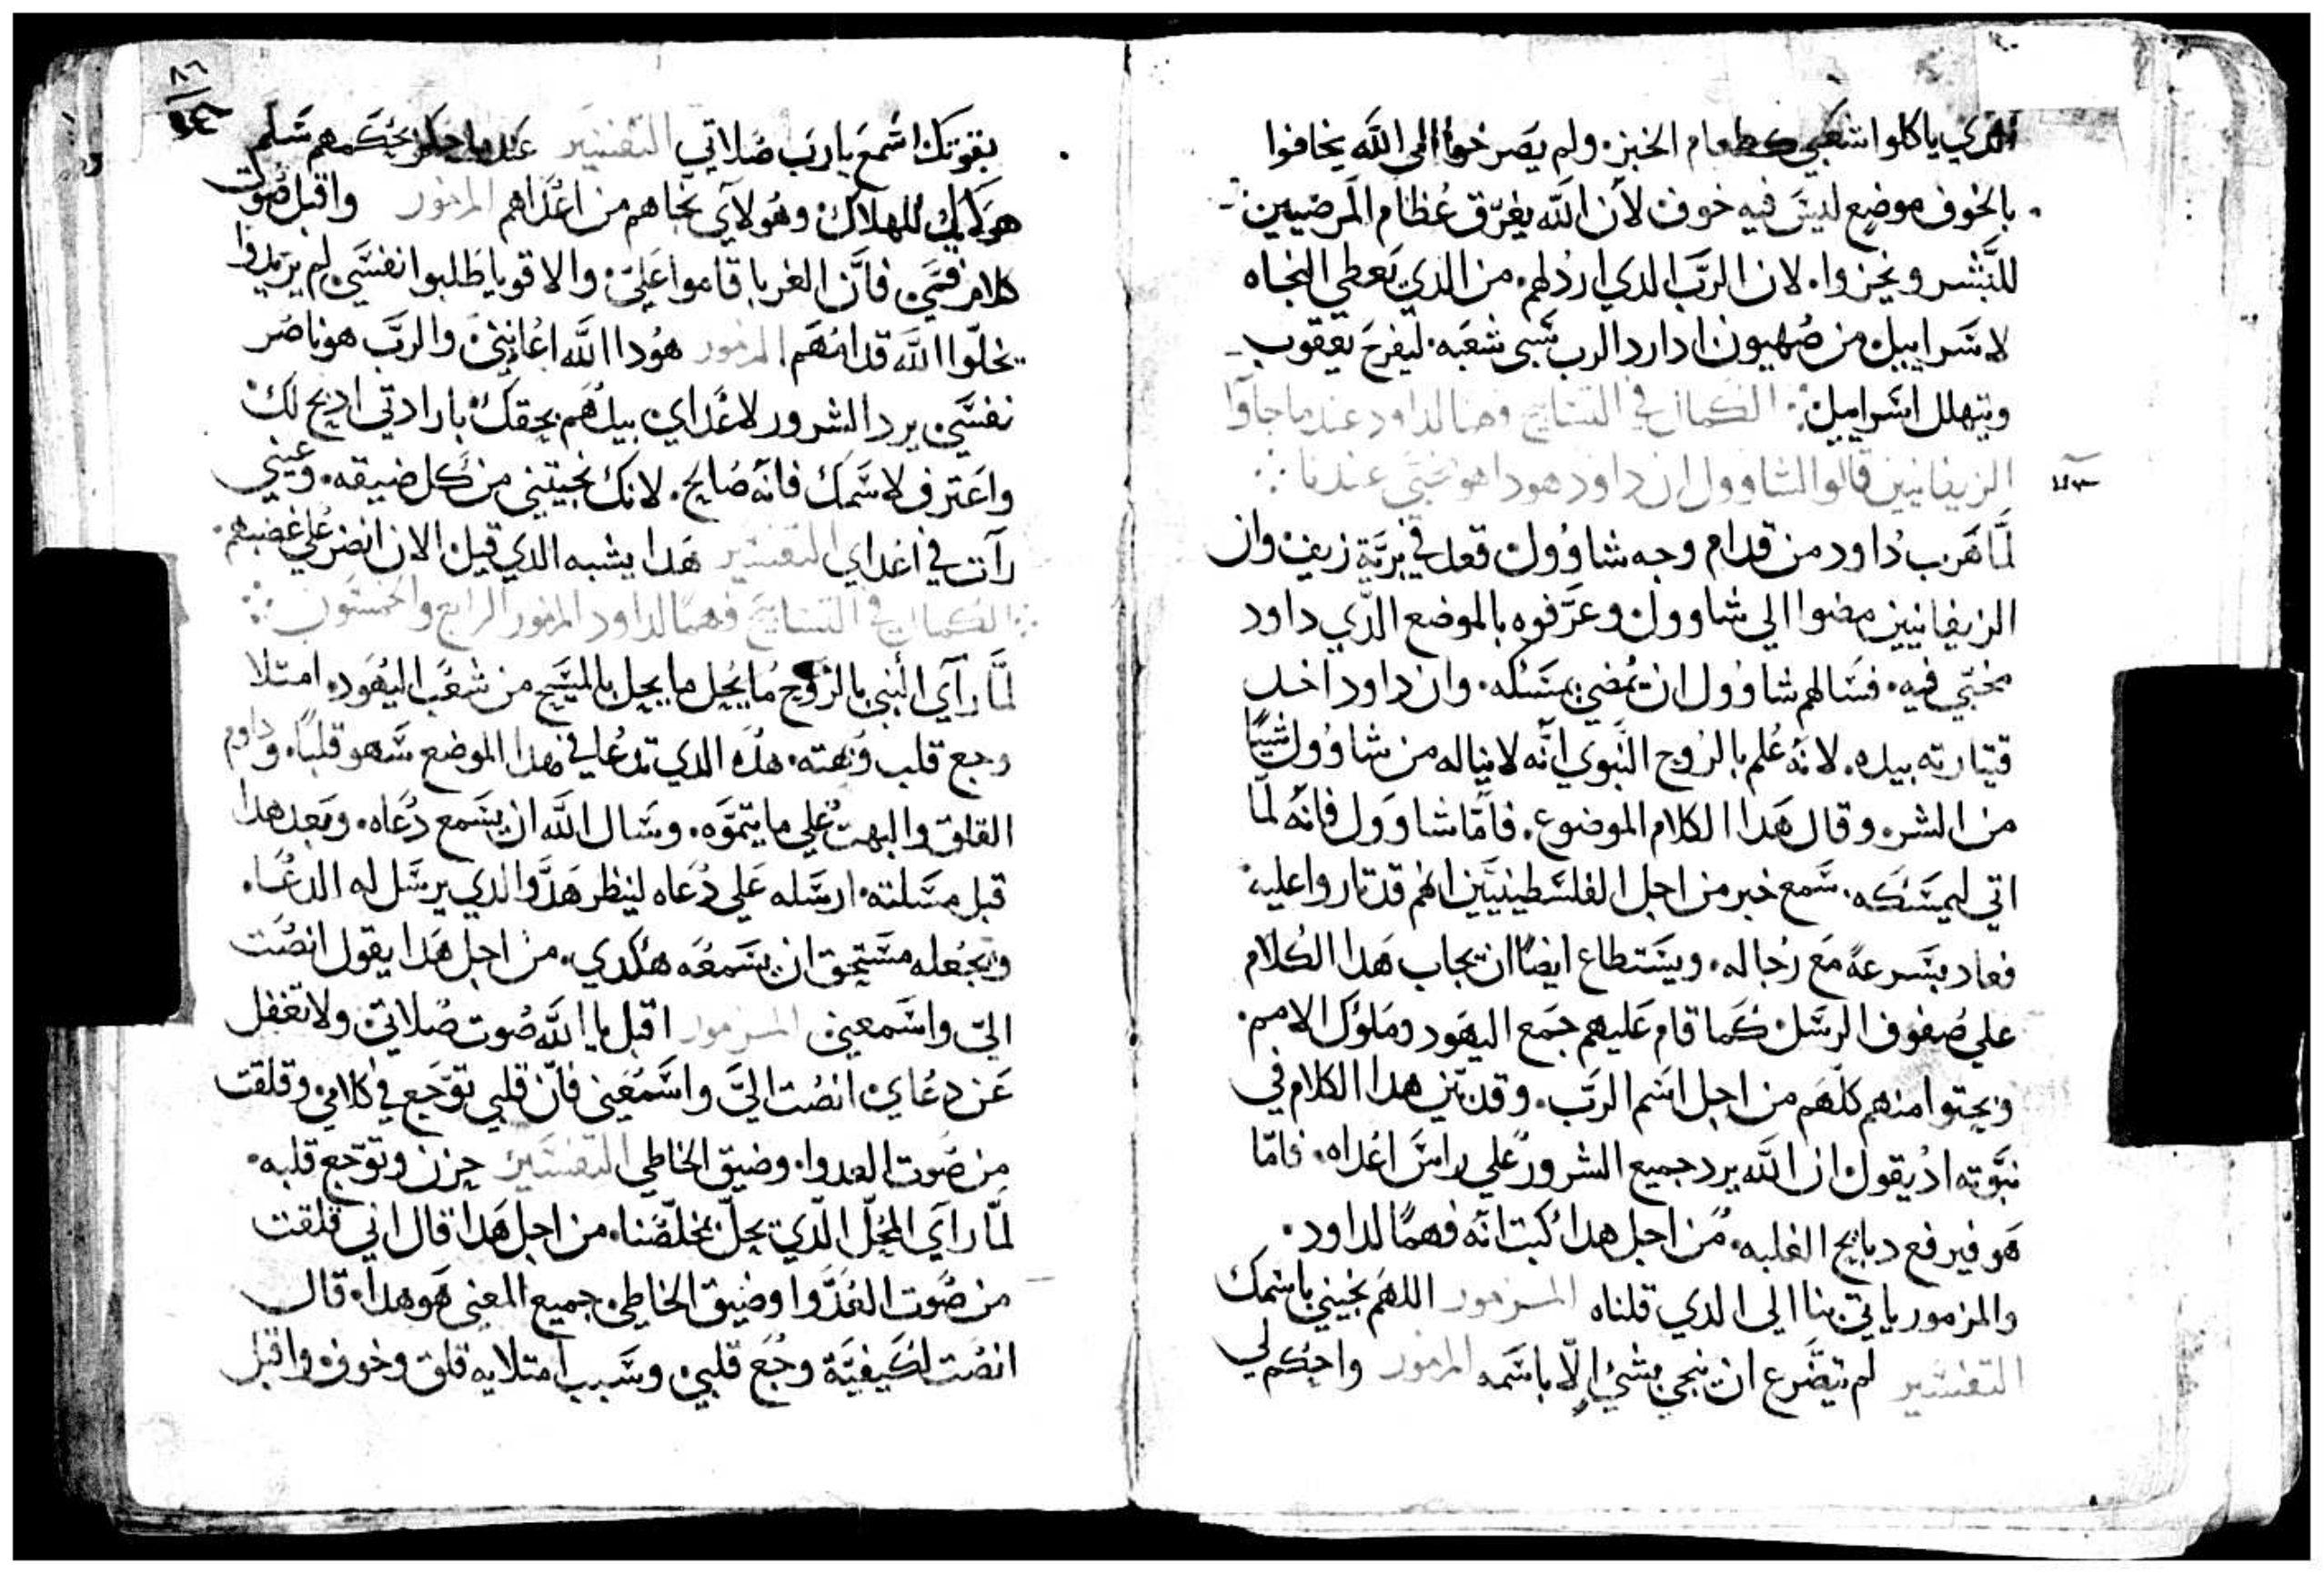 الدي ياكلوا شعبي كطعام الخبز. ولم يصرخوا الى الله يخافوا
بالخوف موضع ليس فيه خوف لأن الله يفرّق عظام المرضيين
للبشر ويخزوا. لان الربّ الدي اردلهم. من الدي يعطي النجاه
لاسراييل من صهيون ادا رد الرب سبى شعبه. ليفرح يعقوب
ويتهلل اسراييل. الكمال في التسابيح وهنا لداود عند ما جاوا
الزيفانيين قالوا لشاوول ان داود هودا هو مختبي عندنا
لمّا هرب داود من قدام وجه شاوول قعد في بريّة زيف وان
الزيفانيين مضوا الي شاوول وعرّفوه بالموضع الدّي داود
مختبي فيه. فسالهم شاوول ان يمضي يمسكه. وان داود اخد
قيتارته بيده. لانه علم بالروح النبوي انّه لا يناله من شاوول شيًا
من الشر. وقال هدا الكلام الموضوع. فامّا شاوول فانّه لمّا
اتي ليمسكه. سمع خبر من اجل الفلسطينيّين انهم قد تاروا عليه
فعاد بسرعة مع رجاله. ويستطاع ايضًا ان يجاب هدا الكلام
علي صفوف الرسل كما قام عليهم جمع اليهود وملوك الامم.
ويحتوا منهم كلّهم من اجل اسم الرب. وقد تزن هدا الكلام في
نبوّته اد يقول ان الله يرد جميع الشرور علي راس اعداه. فامّا
هو فيرفع دبايح الغلبه. من اجل هدا كتب انّه فهمًا لداود.
والمزمور ياتي بنا الي الدي قلناه المزمور اللهم نجيني باسمك
التفسير لم يتضرع ان ينجي بشئ الّا باسمه المزمور واحكم لي
بقوتك اسمع يارب صلاتي التفسير عند ما حكم يحكمهم سلم
هولايك للهلاك وهولاي نجاهم من اعداهم المزمور واقبل صوت
كلام فمي فانّ الغربا قاموا عليّ والاقويا طلبوا نفسي لم يريدوا
يخلّوا الله قدامهم المزمور هودا الله اعانني والربّ هو ناصر
نفسي يرد الشرور لاعداي بيدهم بحقك بارادتي ادبح لك
واعترف لاسمك فانّه صالح. لانك نجيتني من كل ضيقه. وعيني
رات في اعداي التفسير هدا يشبه الدي قيل الان انضر علي غضبهم.
الكمال في التسابيح فهمًا لداود المزمور الرابع والخمسون
لمّا رآي النبي بالروح ما يحل ما يحل بالمسيح من شعب اليهود. امتلا
وجع قلب وبهته. هده الدي تدعا في هدا الموضع سهو قلبًا. وداوم
القلق والبهت علي ما يتموّه. وسال الله ان يسمع دعاه. وبعد هدا
قبل مسلته. ارسله علي دعاه لينظر هدّو الدي يرسل له الدعا.
ويجعله مستحق ان يسمعه هكدي. من اجل هدا يقول انصت
اليّ واسمعني المزمور اقبل يا الله صوت صلاتي ولا تغفل
عن دعاي انصت اليّ واسمعني فانّ قلبي توّجع في كلامي وقلقت
من صوت العدوا. وضيق الخاطي التفسير حزن وتوّجع قلبه.
لمّا راي المحلّ الّدي يحلّ بمخلّصنا. من اجل هدا قال اني قلقت
من صوت العدّوا وضيق الخاطي. جميع المعنى هو هدا. قال
انصت لكيفيّة وجع قلبي. وسبب امتلايه قلق وخوف. واقبل